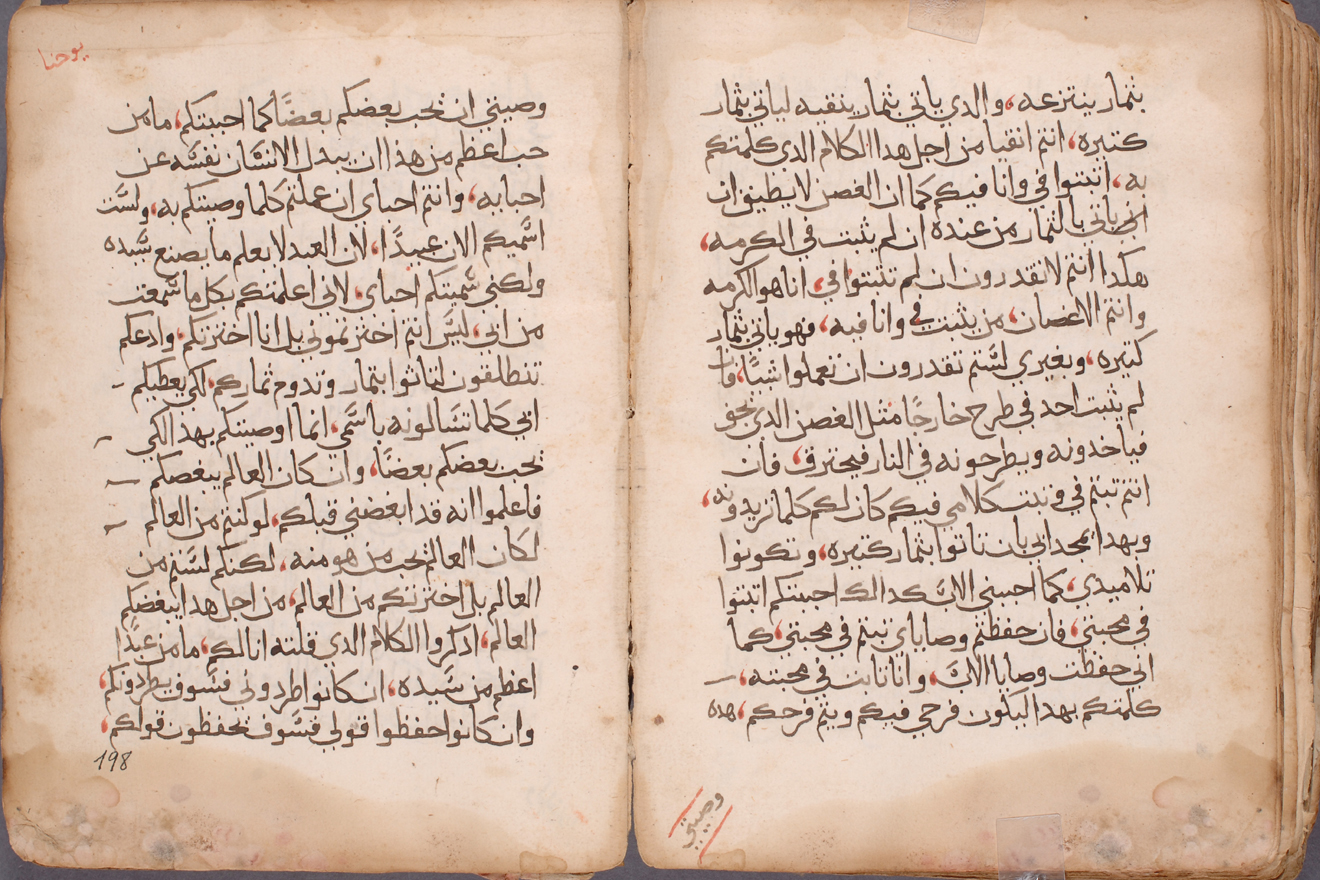 بثمار ينتزعه، والدي ياتي بثمار ينقيه لياتي بثمار
كتيره، انتم انقيا من اجل هدا الكلام الدي كلمتكم
به، اتبتوا في وانا فيكم كما ان الغصن لا يطيق ان
ياتي بالتمار من عنده ان لم يثبت في الكرمه،
هكدا انتم لا تقدرون ان لم تثبتوا في، انا هو الكرمه
وانتم الاغصان، من يثبت في وانا فيه، فهو ياتي بثمار
كتيره، وبغيري لستم تقدرون ان تعملوا شيًا، فان
لم يثبت احد في طرح خارجًا مثل الغصن الدي يجف
فياخدونه ويطرحونه في النار فيحترق، فان
انتم تبتم في وتبت كلامي فيكم كان لكم كلما تريدونه،
وبهدا يمجد ابي بان تاتوا بثمار كتيره، وتكونوا
تلاميدي، كما احبني الاب كدالك احببتكم اتبتوا
في محبتي، فان حفظتم وصاياي تبتم في محبتي، كما
اني حفظت وصايا الاب، وانا تابت في محبته،
كلمتكم بهدا ليكون فرحي فيكم ويتم فرحكم، هده
وصيتي
يوحنا
وصيتي ان تحب بعضكم بعضًا كما احببتكم، ما من
حب اعظم من هذا ان يبدل الانسان نفسه عن
احبايه، وانتم احباي ان عملتم كلما وصيتكم به، ولست
اسميكم الان عبيدًا، لان العبد لا يعلم ما يصنع سيده
ولكني سميتكم احباي، لاني اعلمتكم بكل ما سمعت
من ابي، ليس انتم اخترتموني بل انا اخترتكم، وادعكم
تنطلقون لتاتوا بتمار وتدوم ثماركم، لكي يعطيكم
ابي كلما تسالونه باسمي، انما اوصيتكم بهدا لكي
تحب بعضكم بعضًا، وان كان العالم يبغضكم
فاعلموا انه قد ابغضني قبلكم، لو كنتم من العالم
لكان العالم يحب من هو منه، لكنكم لستم من
العالم بل اخترتكم من العالم، من اجل هدا يبغضكم
العالم، ادكروا الكلام الدي قلته انا لكم، ما من عبدًا
اعظم من سيده، ان كانوا طردوني فسوف يطردونكم،
وان كانوا حفظوا قولي فسوف يحفظون قولكم،
198